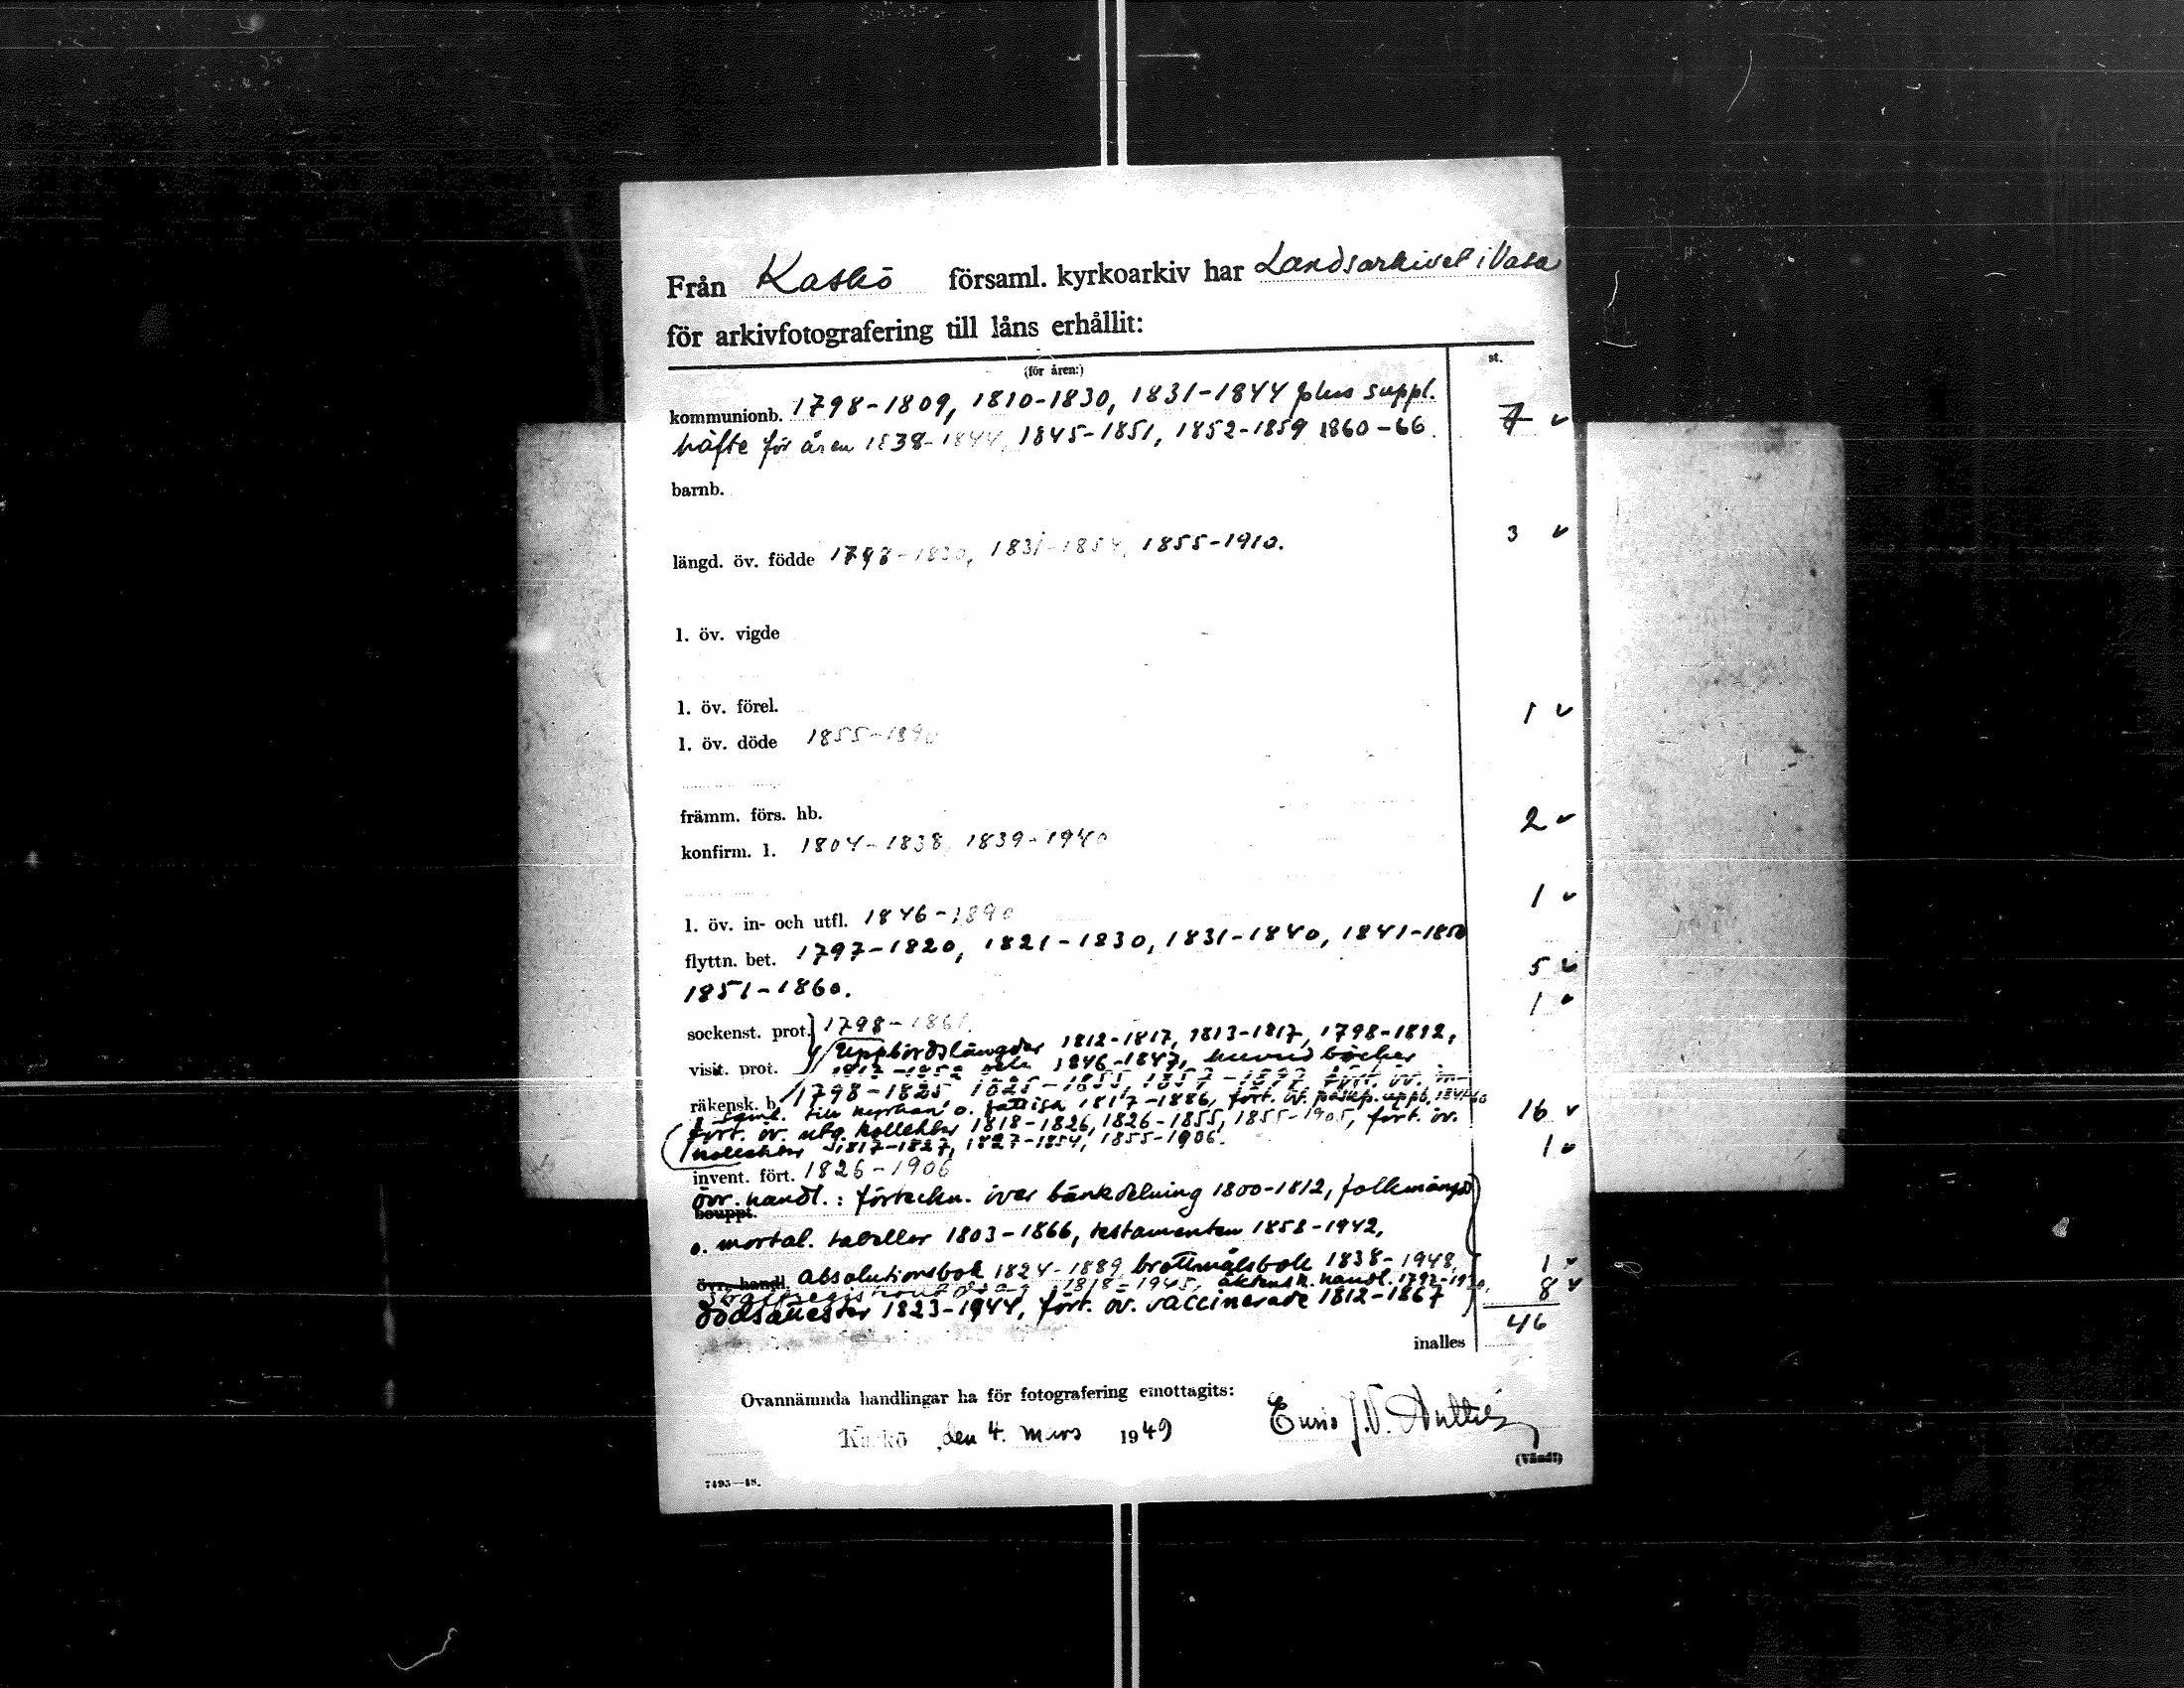 Från Kaskö församl. kyrkoarkiv har Landsarkivet i Vasa
för arkivfotografering till låns erhållit:
(för åren:) st.
kommunionb. 1798-1809, 1810-1830, 1831-1844 plus suppl.
häfte för åren 1838-1844, 1845-1851, 1852-1859 1860-66. 7 ✓
barnb.
längd. öv. födde 1798-1830, 1831-1854, 1855-1910. 3 ✓
l. öv. vigde
l. öv. förel.
l. öv. döde 1855-1890 1 ✓
främm. förs. hb.
konfirm. l. 1804-1838, 1839-1940 2 ✓
l. öv. in- och utfl. 1846-1890 1 ✓
flyttn. bet. 1797-1820, 1821-1830, 1831-1840, 1841-1850
1851-1860. 5 ✓
sockenst. prot. 1798-1861. 1 ✓
Uppbördslängder 1812-1817, 1813-1817, 1798-1812,
visit. prot. 1846-1847, huvudböcker
räkensk. b. 1798-1825, 1825-1855, fört. öv. in-
saml. till kyrkan o. fattiga 1817-1886, fört. öv. 16 ✓
fört. öv. utg. kollekter 1818-1826, 1826-1855, 1855-1905, fört. öv.
kollekter 1817-1827, 1827-1854, 1855-1906.
invent. fört. 1826-1906 1 ✓
övr. handl.: förteckn. över bänkdelning 1800-1812, folkmängd
bouppt.
o. mortal. tabeller 1803-1866, testamenten 1858-1942,
övr. handl. Absolutionsbok 1824-1889, brottmålsbok 1838-1948, 1 ✓
1818-1945, äktensk. handl. 8 ✓
dödsattester 1823-1944, fört. öv. vaccinerade 1812-1867
inalles 46
Ovannämnda handlingar ha för fotografering emottagits:
Kaskö, den 4. mars 1949
(Vänd!)
7495—48.